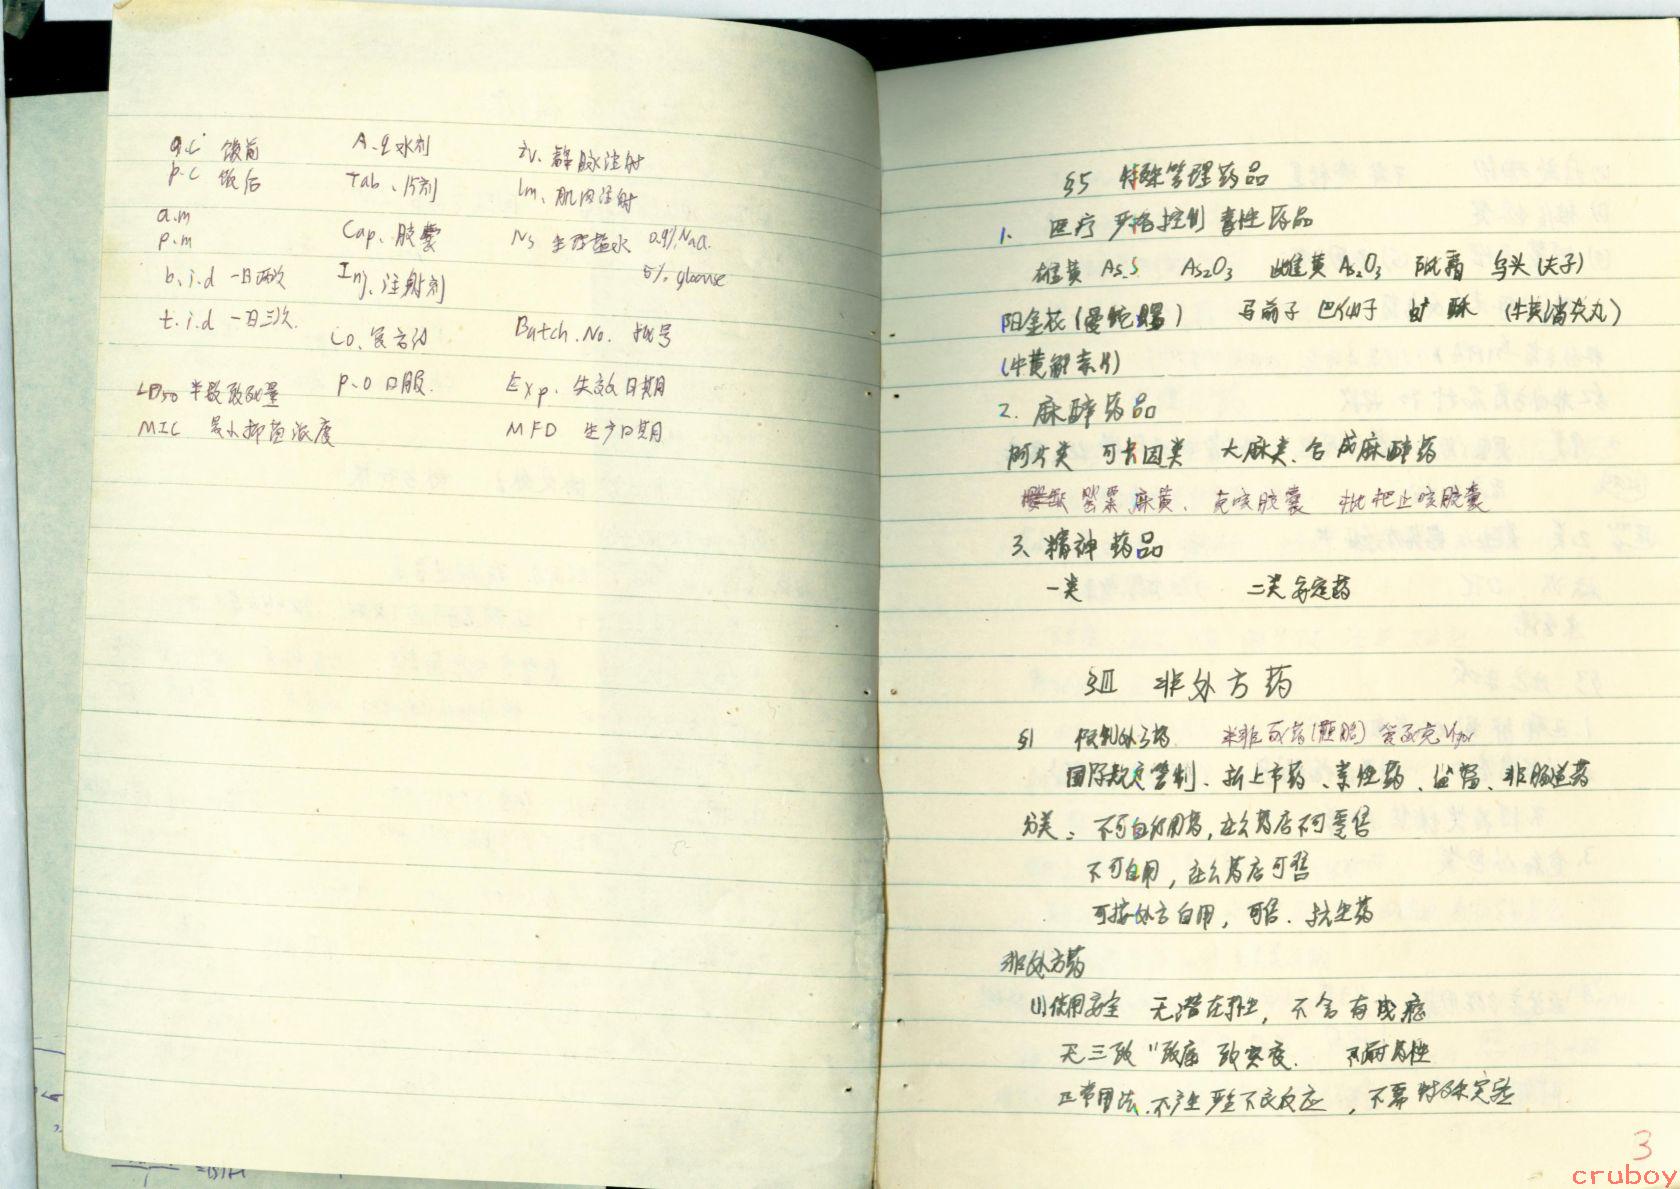 a.c 饭前
p.c 饭后
a.m
p.m
b.i.d 一日两次
t.i.d 一日三次.
LD50 半数致死量
MIC 最小抑菌浓度
A.q 水剂
Tab、片剂
Cap、胶囊
Inj、注射剂
Co、复方的
P.O 口服.
iv. 静脉注射
Im、肌肉注射
NS 生理盐水 0.9% NaCl.
5% glucose
Batch.No. 批号
Exp. 失效日期
MFD 生产日期
§5 特殊管理药品
1. 医疗 严格控制 毒性药品
雄黄 As.S As2O3 雌黄 As2O3 砒霜 乌头(夫子)
阳金花(曼陀罗) 马前子 巴仙子 酥 (牛黄消炎丸)
(牛黄解毒片)
2. 麻醉药品
阿片类 可卡因类 大麻类、合成麻醉药
罂粟 麻黄、克咳胶囊 枇杷止咳胶囊
3、精神药品
一类 二类 安定药
§III 非处方药
§1 米非司酮
国际规定管制、新上市药、毒性药、非肠道药
分类: 不可自行用药,在公药店不可零售
不可自用,在公药店可售
可按处方自用,可售. 抗生药
非处方药
(1)使用安全 无潜在毒性,不含有成瘾
无三致 "致癌 致突变. 不耐药性
正常用法.不产生严重不良反应,不需特殊实验
3
cruboy